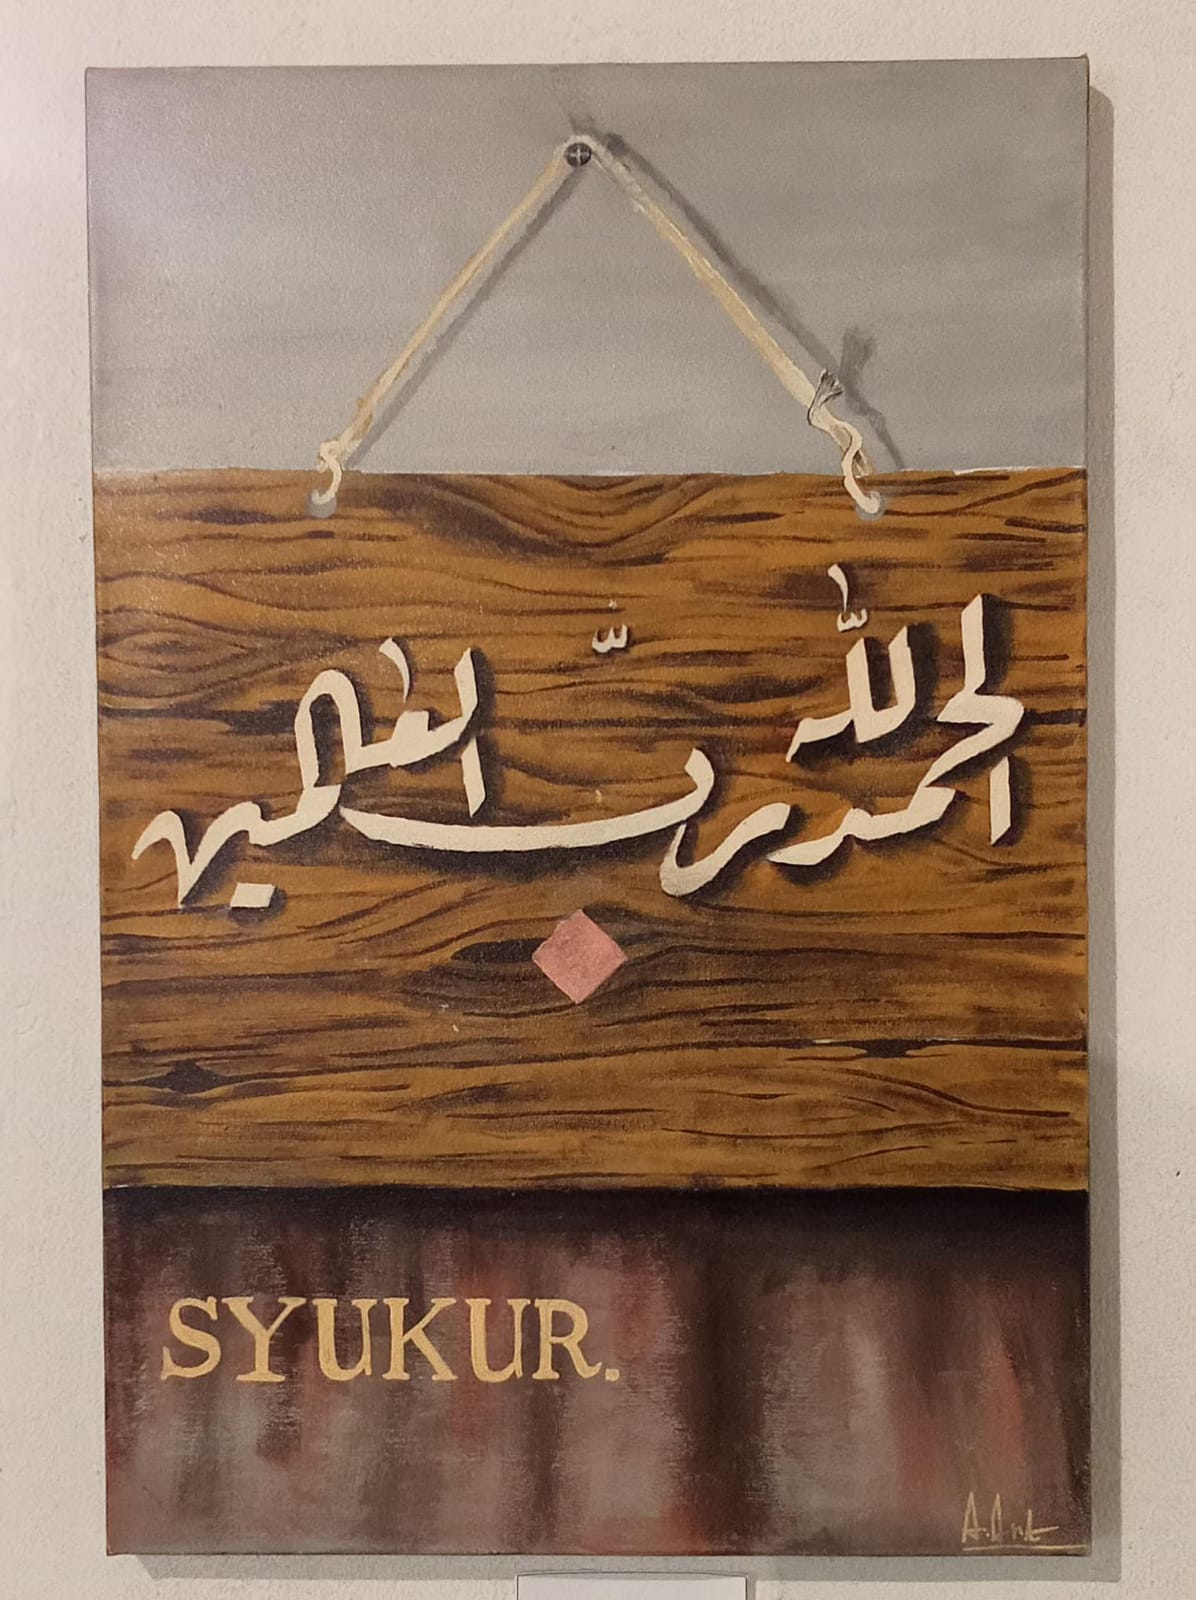 الحمد لله رب العلمين
SYUKUR.
A.Art